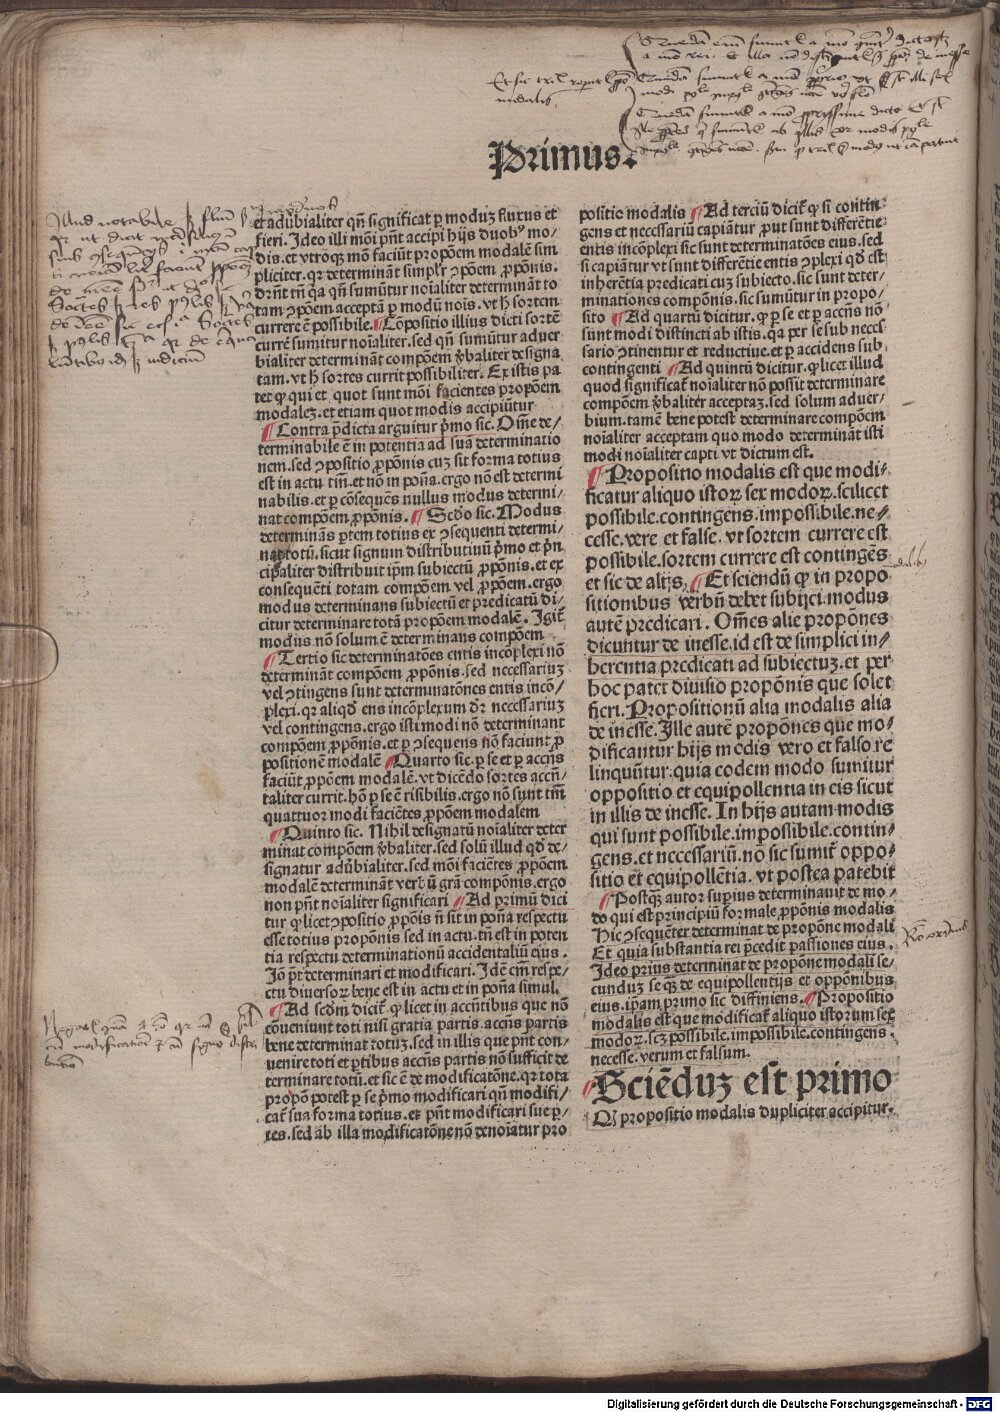 Primus.
et adūbialiter qn̄ significat ꝑ moduȝ fluxus et
fieri. Ideo illi mōi pn̄t accipi hijs duobꝰ mo/
dis. et vtroqꝫ mō faciūt propōem modalē sim
pliciter. qr determināt simplr ꝯpōem ꝓpōnis.
Drn̄t tn̄ qa qn̄ sumūtur noīaliter determināt to
tam ꝯpōem acceptā ꝑ modū noīs. vt h̵ sortem
currere ē possibile. Cōpositio illius dicti sortē
currē sumitur noīaliter. sed qn̄ sumūtur aduer
bialiter determināt compōem v̄baliter designa
tam. vt h̵ sortes currit possibiliter. Ex istis pa
tet ꝙ qui et quot sunt mōi facientes propōem
modaleȝ. et etiam quot modis accipiūtur
Contra p̄dicta arguitur p̄mo sic. Om̄e de/
terminabile ē in potentia ad suā determinatio
nem. sed ꝯpositio ꝓpōnis cuȝ sit forma totius
est in actu tm̄. et nō in pōna. ergo nō est determi
nabilis. et ꝑ cōsequēs nullus modus determi/
nat compōem ꝓpōnis. Scdo sic. Modus
determinās ꝑtem totius ex ꝯsequenti determi/
nat totū. sicut signum distributiuū p̄mo et p̄n
cipaliter distribuit ip̄m subiectū ꝓpōnis. et ex
consequēti totam compōem vel ꝓpōem. ergo
modus determinans subiectū et predicatū di/
citur determinare totā propōem modalē. Igit̄
modus nō solum ē determinans compōem
Tertio sic determinatōes entis incōplexi nō
determināt compōem ꝓpōnis. sed necessariuȝ
vel ꝯtingens sunt determinatōnes entis incō/
plexi. qr aliqd̄ ens incōplexum dr̄ necessariuȝ
vel contingens. ergo isti modi nō determinant
compōem ꝓpōnis. et ꝑ ꝯsequens nō faciunt ꝓ
positionē modalē Quarto sic. ꝑ se et ꝑ accn̄s
faciūt ꝓpōem modalē. vt dicēdo sortes accn̄/
taliter currit. hō ꝑ se ē risibilis. ergo nō sunt tm̄
quattuor modi faciētes ꝓpōem modalem
Quinto sic. Nihil designatū noīaliter deter
minat compōem v̄baliter. sed solū illud qd̄ de/
signatur adūbialiter. sed mōi faciētes ꝓpōem
modalē determināt verbū grā compōnis. ergo
non pn̄t noīaliter significari Ad primū dici
tur ꝙ licet ꝯpositio ꝓpōis n̄ sit in pōna respectu
esse totius propōnis sed in actu. tn̄ est in poten
tia respectu determinationū accidentaliū eius.
Iō p̄t determinari et modificari. Idē em̄ respe/
ctu diuersoꝝ bene est in actu et in pōna simul.
Ad scdm̄ dicit̄ ꝙ licet in accn̄tibus que nō
cōueniunt toti nisi gratia partis. accn̄s partis
bene determinat totuȝ. sed in illis que pn̄t con/
uenire toti et ꝑtibus accn̄s partis nō sufficit de
terminare totū. et sic ē de modificatōne. qr tota
propō potest ꝑ se p̄mo modificari qn̄ modifi/
cat̄ sua forma totius. et pn̄t modificari sue ꝑ/
tes. sed ab illa modificatōne nō denoīatur pro
positio modalis Ad terciū dicit̄ ꝙ si contin
gens et necessariū capiātur ꝓut sunt differētie
entis incōplexi sic sunt determinatōes eius. sed
si capiātur vt sunt differētie entis ꝯplexi qd̄ est
inherētia predicati cuȝ subiecto. sic sunt deter/
minationes compōnis. sic sumūtur in propo/
sito Ad quartū dicitur. ꝙ ꝑ se et ꝑ accn̄s nō
sunt modi distincti ab istis. qa per se sub neces
sario ꝯtinentur et reductiue. et ꝑ accidens sub
contingenti Ad quintū dicitur. ꝙ licet illud
quod significat̄ noīaliter nō possit determinare
compōem v̄baliter acceptaȝ. sed solum aduer/
bium. tamē bene potest determinare compōem
noīaliter acceptam quo modo determināt isti
modi noīaliter capti vt dictum est.
Propositio modalis est que modi/
ficatur aliquo istoꝝ sex modoꝝ. scilicet
possibile. contingens. impossibile. ne/
cesse. vere et false. vt sortem currere est
possibile. sortem currere est contingēs
et sic de alijs. Et sciendū ꝙ in propo
sitionibus verbū debet subijci. modus
autē predicari. Om̄es alie propōnes
dicuntur de inesse. id est de simplici in/
herentia predicati ad subiectuȝ. et per
hoc patet diuisio propōnis que solet
fieri. Propositionū alia modalis alia
de inesse. Ille autē propōnes que mo/
dificantur hijs modis vero et falso re
linquūtur. quia eodem modo sumitur
oppositio et equipollentia in eis sicut
in illis de inesse. In hijs autam modis
qui sunt possibile. impossibile. contin/
gens. et necessariū. nō sic sumit̄ oppo/
sitio et equipollētia. vt postea patebit
Postqȝ autor suꝑius determinauit de mo/
do qui est principiū formale ꝓpōnis modalis
Hic ꝯsequēter determinat de propōne modali
Et quia substantia rei p̄cedit passiones eius.
Ideo prius determinat de propōne modali se/
cunduȝ se qȝ de equipollentijs et oppōnibus
eius. ip̄am primo sic diffiniens. Propositio
modalis est que modificat̄ aliquo istorum sex
modoꝝ. scȝ possibile. impossibile. contingens.
necesse. verum et falsum.
Sciēduȝ est primo
Q propositio modalis dupliciter accipitur.
Digitalisierung gefördert durch die Deutsche Forschungsgemeinschaft - DFG